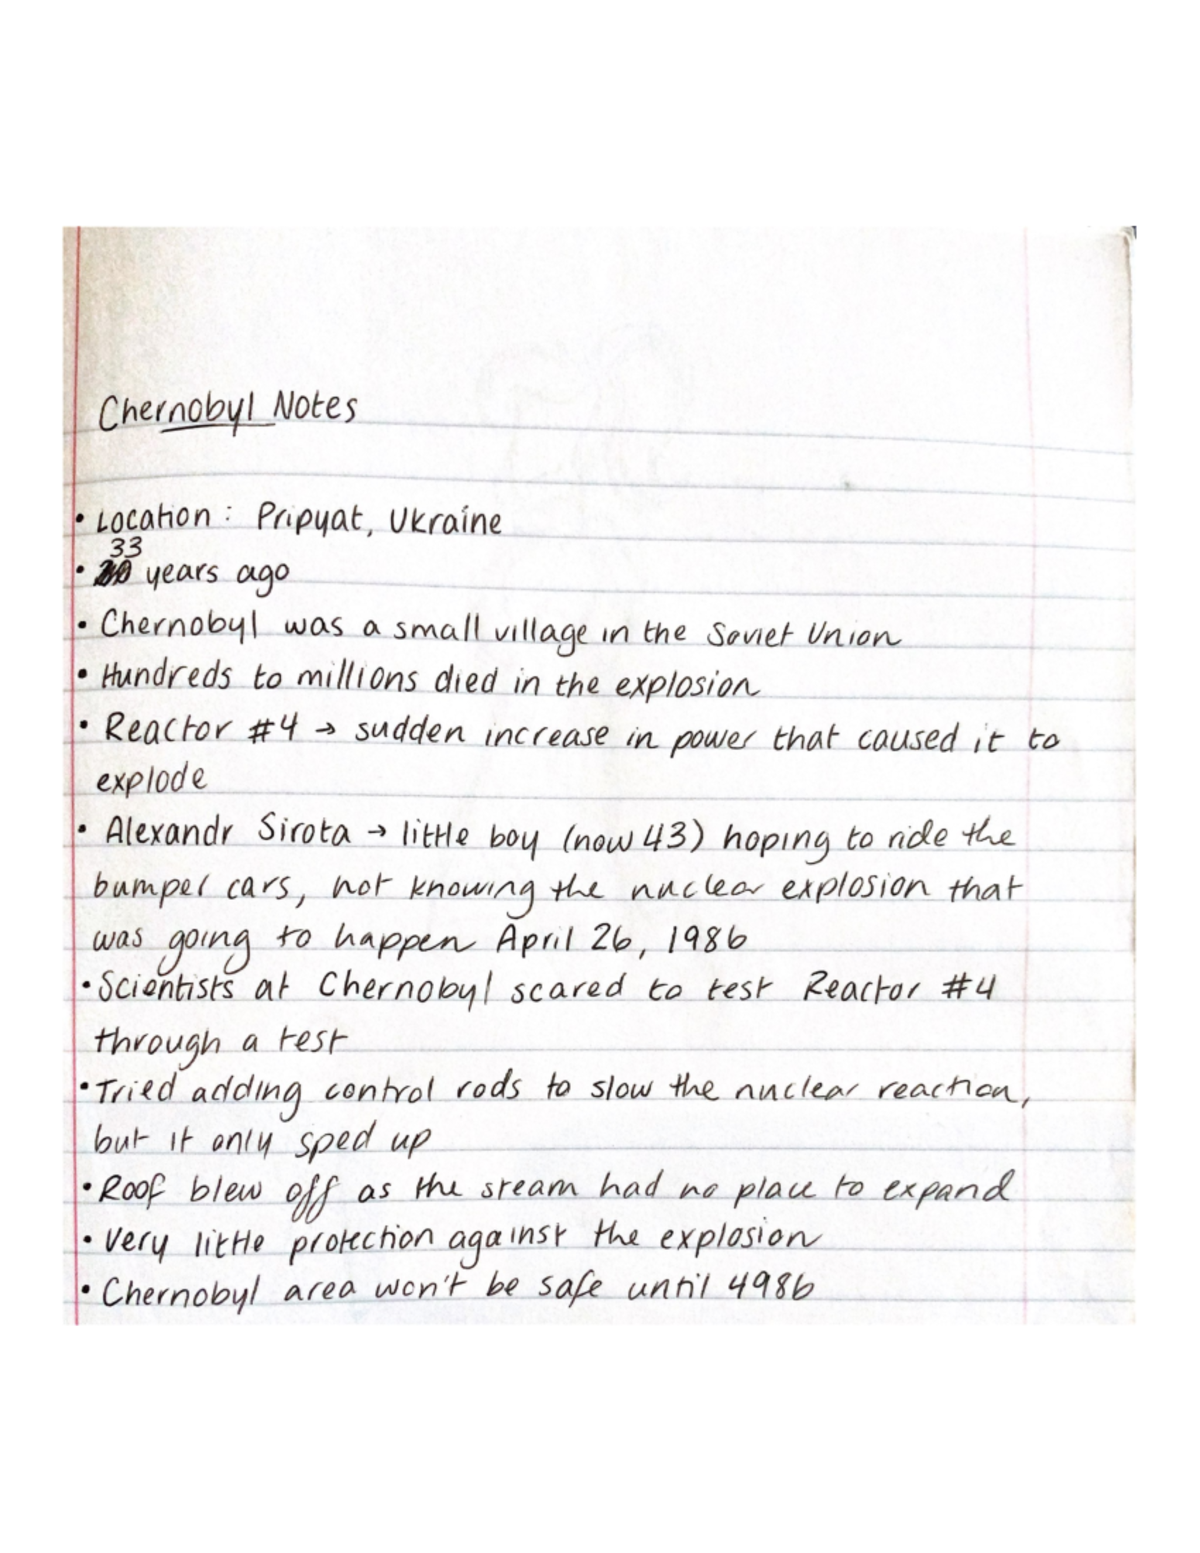 Chernobyl Notes
• Location: Pripyat, Ukraine
33
• years ago
• Chernobyl was a small village in the Soviet Union
• Hundreds to millions died in the explosion
• Reactor #4 → sudden increase in power that caused it to
explode
• Alexandr Sirota → little boy (now 43) hoping to ride the
bumper cars, not knowing the nuclear explosion that
was going to happen April 26, 1986
• Scientists at Chernobyl scared to test Reactor #4
through a test
• Tried adding control rods to slow the nuclear reaction,
but it only sped up
• Roof blew off as the steam had no place to expand
• Very little protection against the explosion
• Chernobyl area won't be safe until 4986